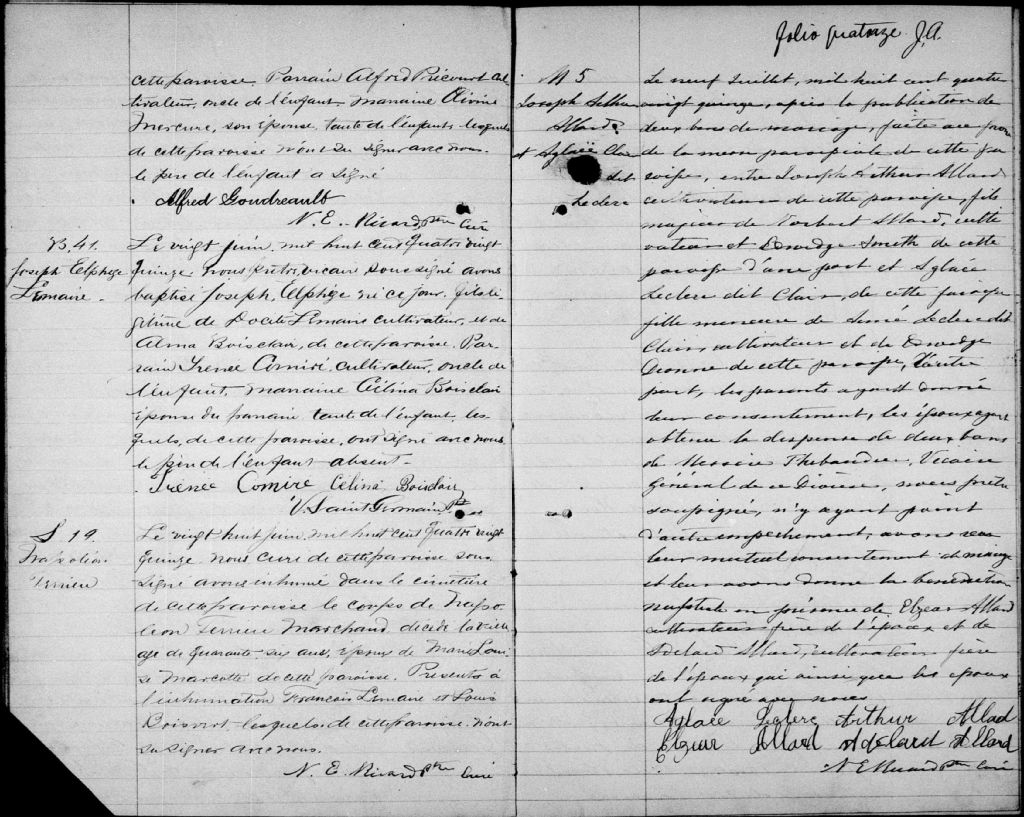 cette paroisse. Parrain Alfred Précourt cul-
tivateur, oncle de l'enfant marraine Olivine
Mercure, son épouse, tante de l'enfant, lesquels
de cette paroisse n'ont su signer avec nous.
le père de l'enfant a signé
Alfred Goudreault
N. E. Ricard Ptre Curé
B. 41.
Joseph Elphège
Lemaire.
Le vingt juin, mil huit cent quatre vingt
quinze nous prêtre, vicaire soussigné avons
baptisé Joseph, Elphège né ce jour, fils lé-
gitime de Docité Lemaire cultivateur, et de
Alma Boisclair, de cette paroisse. Par-
rain Irénée Comire, cultivateur, oncle de
l'enfant, marraine Célina Boisclair
épouse du parrain tante de l'enfant les
quels, de cette paroisse, ont signé avec nous
le père de l'enfant absent.
Irenee Comire Celina Boisclair
V. Saint Germain Ptre
S 19.
Napoléon
Terrien
Le vingt huit juin, mil huit cent quatre vingt
quinze, nous curé de cette paroisse sous
signé avons inhumé dans le cimetière
de cette paroisse le corps de Napo-
léon Marchand, décédé la veille
age de quarante six ans, époux de Marie Loui-
se Marcotte de cette paroisse. Presents à
l'inhumation François Lemaire et Louis
Boisvert lesquels de cette paroisse n'ont
su signer avec nous.
N. E. Ricard Ptre Curé
folio quatorze J.A.
M 5
Joseph Arthur
Allard
et Aglaée Clair
dit
Leclerc
Le neuf Juillet, mil huit cent quatre
vingt quinze, après la publication de
deux bans de mariage, faite au prone
de la messe paroissiale de cette pa
roisse, entre Joseph Arthur Allard
cultivateur de cette paroisse, fils
majeur de Norbert Allard, culti
vateur et Edwidge Smith de cette
paroisse d'une part et Aglaée
Leclerc dit Clair, de cette paroisse
fille mineure de Aimé Leclerc dit
Clair, cultivateur et de Edwidge
Dionne de cette paroisse, d'autre
part, les parents ayant donné
leur consentement, les époux ayant
obtenu la dispense de deux bans
de Messire Thibaudier, Vicaire
Général de ce Diocèse, nous prêtre
soussigné, n'y ayant point
d'autre empêchement, avons reçu
leur mutuel consentement de mariage
et leur avons donné la bénédiction
nuptiale en présence de Elzear Allard
cultivateur frère de l'époux et de
Adelard Allard, cultivateur frère
de l'époux qui ainsi que les époux
ont signé avec nous
Aglaée Leclerc Arthur Allad
Elzear Allard Adelard Allard
N E Ricard Ptre Curé